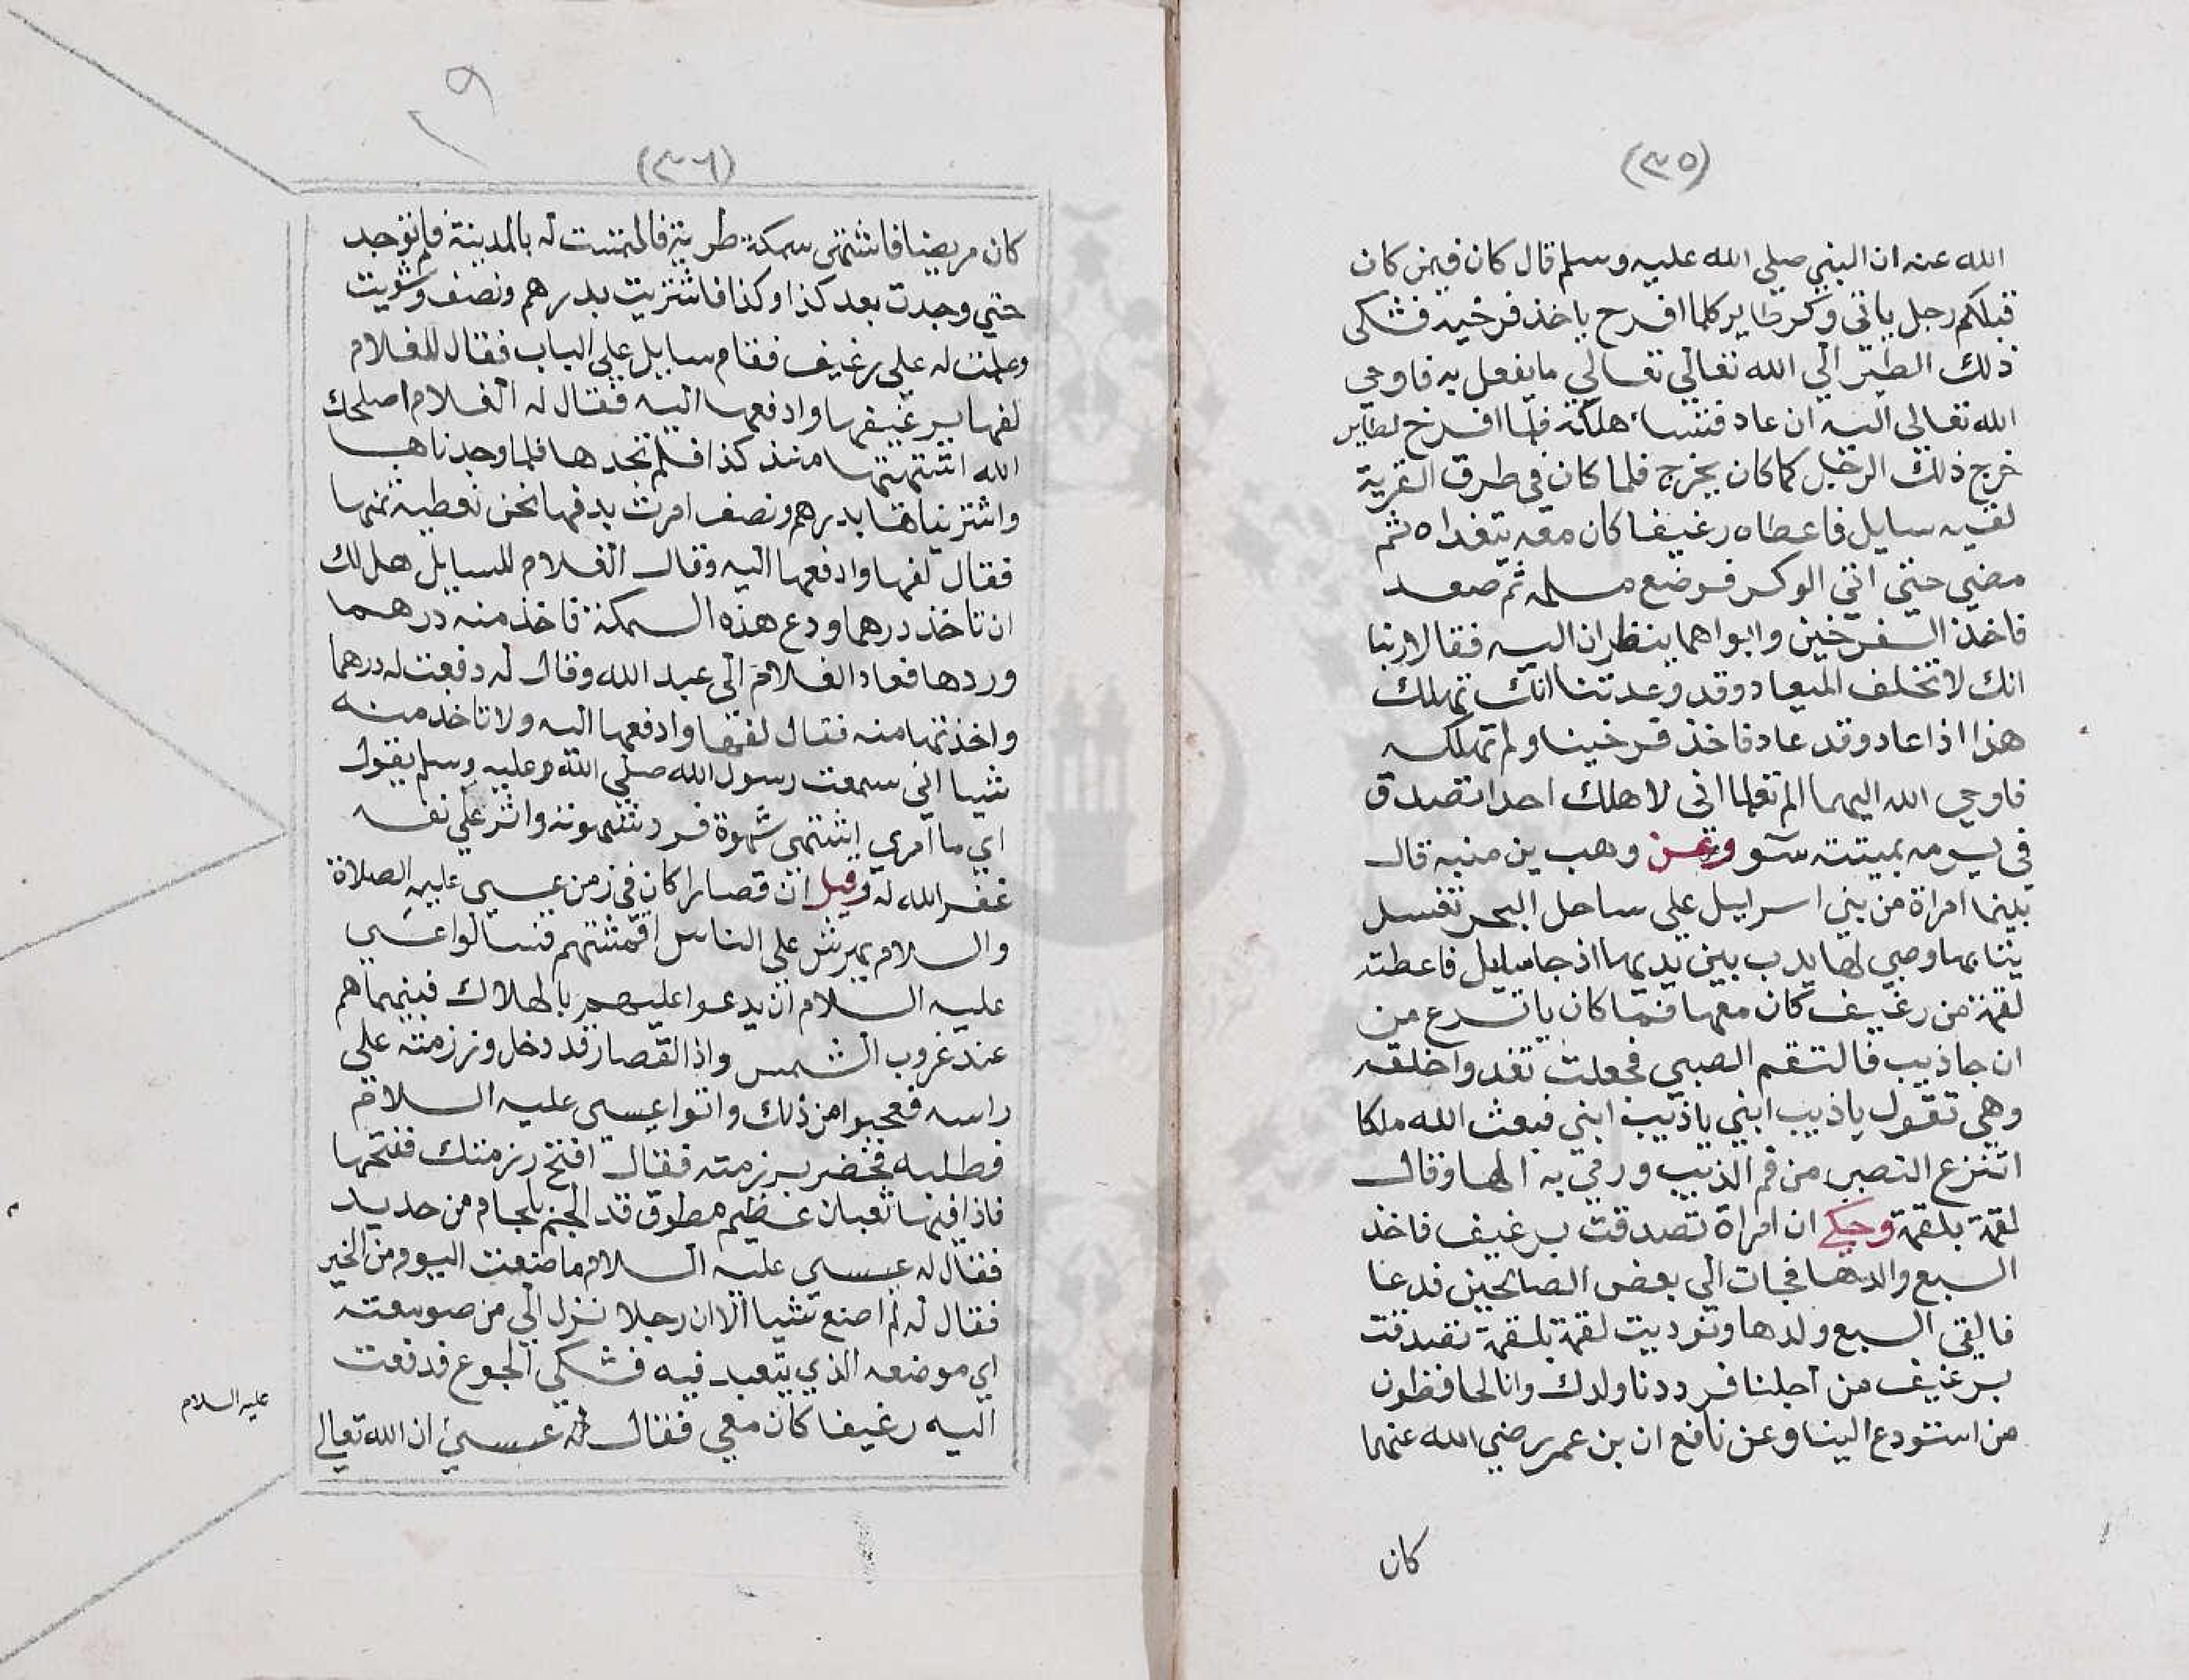 (٣٥)
الله عنه ان النبي صلي الله عليه وسلم قال كان فيمن كان
قبلكم رجل ياتي وكر طاير كلما افرخ ياخذ فرخيه فشكى
ذلك الطير الي الله تعالي تعالي ما يفعل به فاوحي
الله تعالي اليه ان عاد فنسا هلكه فلما افرخ لطاير
خرج ذلك الرجل كما كان يخرج فلما كان في طرف القرية
لقيه سايل فاعطاه رغيفا كان معه يتغداه ثم
مضي حتي اتي الوكر فوضع سلمه ثم صعد
فاخذ الفرخين وابواهما ينظران اليه فقالا ربنا
انك لا تخلف الميعاد وقد وعدتنا انك تهلك
هذا اذا عاد وقد عاد فاخذ فرخينا ولم تهلكه
فاوحي الله اليهما الم تعلما اني لا هلك احدا تصدق
في يومه بميتة سوء وعن وهب بن منبه قال
بينما امراة من بني اسراييل علي ساحل البحر تغسل
ثيابها وصبي لها يدب بين يديها اذ جا سايل فاعطته
لقمة من رغيف كان معها فما كان باسرع من
ان جا ذيب فالتقم الصبي فجعلت تغدوا خلفه
وهي تقول يا ذيب ابني يا ذيب ابني فبعث الله ملكا
انتزع الصبي من فم الذيب ورمي به اليها وقال
لقمة بلقمة وحكي ان امراة تصدقت برغيف فاخذ
السبع والدها فجات الي بعض الصالحين فدعا
فالقي السبع ولدها ونوديت لقمة بلقمة تصدقت
برغيف من اجلنا فرددنا ولدك وانا لحافظون
من استودع الينا وعن نافع ان بن عمر رضي الله عنهما
كان
٢٩
(٣٦)
كان مريضا فاشتهى سمكة طرية فالتمست له بالمدينة فلم توجد
حتي وجدت بعد كذا وكذا فاشتريت بدرهم ونصف وشويت
وعملت له علي رغيف فقام سايل علي الباب فقال للغلام
لفها برغيفها وادفعها اليه فقال له الغلام اصلحك
الله اشتهيتها منذ كذا فلم نجدها فلما وجدناها
واشتريناها بدرهم ونصف امرت بدفعها نحن نعطيه ثمنها
فقال لفها وادفعها اليه وقال الغلام للسايل هل لك
ان تاخذ درهما ودع هذه السمكة فاخذ منه درهما
وردها فعاد الغلام الي عبد الله وقال له دفعت له درهما
واخذتها منه فقال لفها وادفعها اليه ولا تاخذ منه
شيا اني سمعت رسول الله صلي الله عليه وسلم يقول
اي ما امري اشتهي شهوة فرد شهوته واثر علي نفسه
غفر الله له وقيل ان قصارا كان في زمن عيسي عليه الصلاة
والسلام يمرش علي الناس اقمشتهم فسالوا عيسي
عليه السلام ان يدعوا عليهم بالهلاك فبينما هم
عند غروب الشمس واذا القصار قد دخل ورزمته علي
راسه فعجبوا من ذلك واتوا عيسي عليه السلام
فطلبه فحضر برزمته فقال افتح رزمتك ففتحها
فاذا فيها ثعبان عظيم مطوق قد الجم بلجام من حديد
فقال له عيسي عليه السلام ما صنعت اليوم من الخير
فقال له لم اصنع شيا الا ان رجلا نزل الي من صومعته
اي موضعه الذي يتعبد فيه فشكي الجوع فدفعت
اليه رغيفا كان معي فقال له عيسي ان الله تعالي
عليه السلام